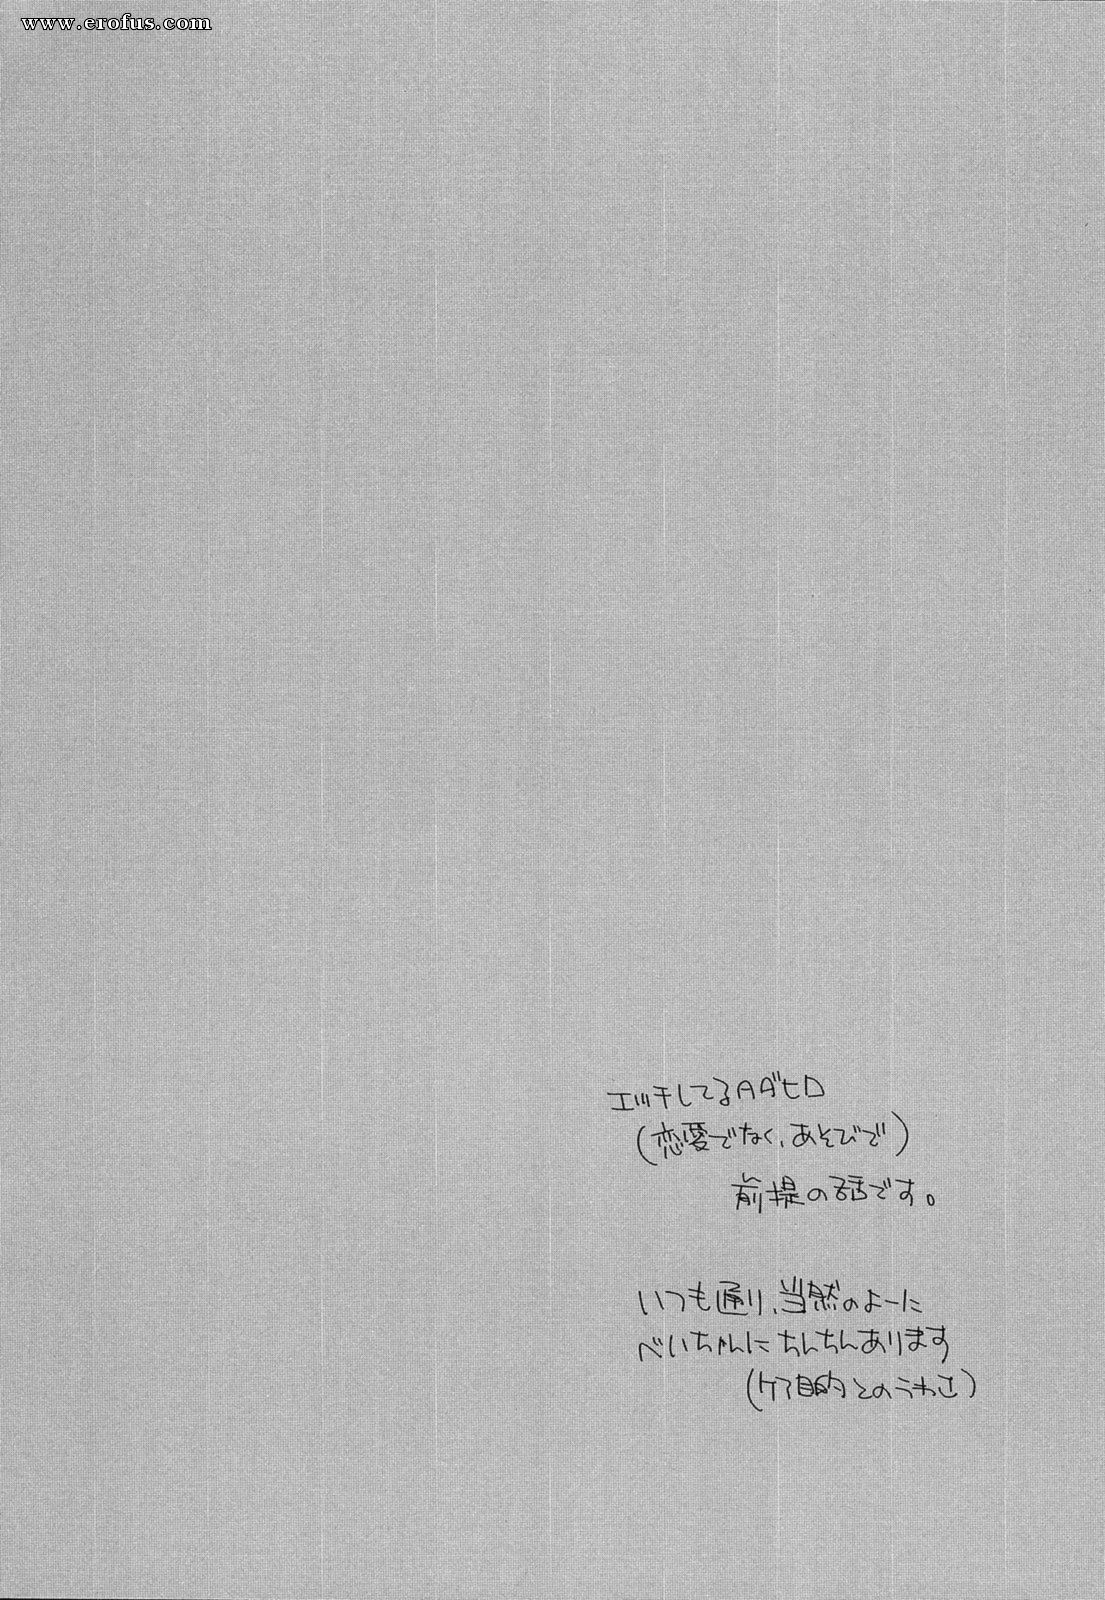 www.erofus.com
エッチしてるAダヒロ
(恋愛でなく、あそびで)
前提の話です。
いつも通り、当然のよーに
べいちゃんにちんちんあります
目的とのうわさ)